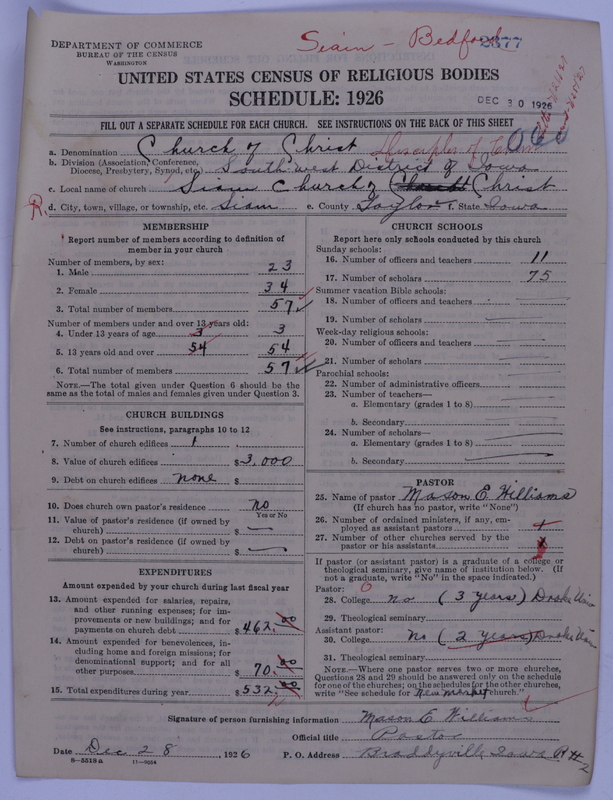 DEPARTMENT OF COMMERCE
BUREAU OF THE CENSUS
WASHINGTON
Siam - Bedford
2377
UNITED STATES CENSUS OF RELIGIOUS BODIES
SCHEDULE: 1926
DEC 30 1926
FILL OUT A SEPARATE SCHEDULE FOR EACH CHURCH. SEE INSTRUCTIONS ON THE BACK OF THIS SHEET
060
a. Denomination Church of Christ Disciples of Christ
b. Division (Association, Conference, Diocese, Presbytery, Synod, etc.) South west District of Iowa
c. Local name of church Siam Church of Christ
R. d. City, town, village, or township, etc. Siam e. County Taylor f. State Iowa
MEMBERSHIP
Report number of members according to definition of member in your church
Number of members, by sex:
1. Male 23
2. Female 34
3. Total number of members 57
Number of members under and over 13 years old:
4. Under 13 years of age 3 3
5. 13 years old and over 54 54
6. Total number of members 57
NOTE.—The total given under Question 6 should be the same as the total of males and females given under Question 3.
CHURCH BUILDINGS
See instructions, paragraphs 10 to 12
7. Number of church edifices 1
8. Value of church edifices $3,000
9. Debt on church edifices none $
10. Does church own pastor's residence no
Yes or No
11. Value of pastor's residence (if owned by church) $
12. Debt on pastor's residence (if owned by church) $
EXPENDITURES
Amount expended by your church during last fiscal year
13. Amount expended for salaries, repairs, and other running expenses; for improvements or new buildings; and for payments on church debt $462.00
14. Amount expended for benevolences, including home and foreign missions; for denominational support; and for all other purposes 70.00
15. Total expenditures during year $532.00
CHURCH SCHOOLS
Report here only schools conducted by this church
Sunday schools:
16. Number of officers and teachers 11
17. Number of scholars 75
Summer vacation Bible schools:
18. Number of officers and teachers
19. Number of scholars
Week-day religious schools:
20. Number of officers and teachers
21. Number of scholars
Parochial schools:
22. Number of administrative officers
23. Number of teachers—
a. Elementary (grades 1 to 8)
b. Secondary
24. Number of scholars—
a. Elementary (grades 1 to 8)
b. Secondary
PASTOR
25. Name of pastor Mason E. Williams
(If church has no pastor, write "None")
26. Number of ordained ministers, if any, employed as assistant pastors
27. Number of other churches served by the pastor or his assistants
If pastor (or assistant pastor) is a graduate of a college or theological seminary, give name of institution below. (If not a graduate, write "No" in the space indicated.)
Pastor:
28. College no (3 years) Drake Univ
29. Theological seminary
Assistant pastor:
30. College No (2 years) Drake Univ
31. Theological seminary
NOTE.—Where one pastor serves two or more churches, Questions 28 and 29 should be answered only on the schedule for one of the churches; on the schedules for the other churches, write "See schedule for New Market church."
Signature of person furnishing information Mason E Williams
Official title Pastor
Date Dec 28, 1926 P. O. Address Braddyville Iowa R#2
8-5518a 11-9054